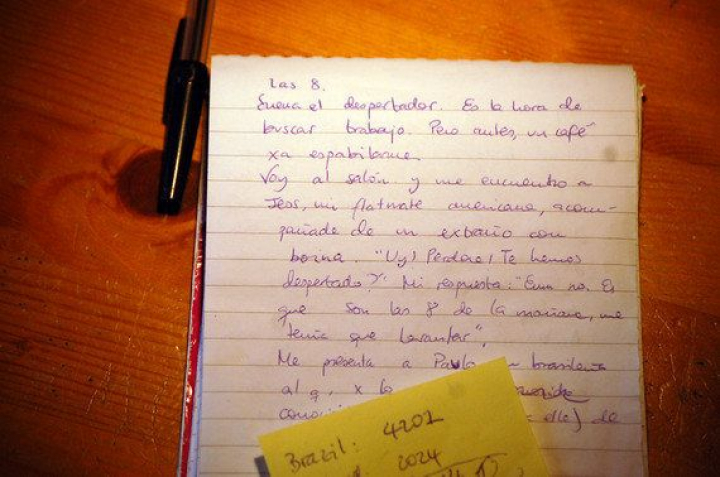 Las 8.
Suena el despertador. Es la hora de
buscar trabajo. Pero antes, un café
xa espabilarme.
Voy al salón y me encuentro a
Jeos, mi flatmate americana, acom-
pañada de un extraño con
boina. "Uy! Perdona! Te hemos
despertado?" Mi respuesta: "Emm no. Es
que son las 8 de la mañana, me
tenía que levantar".
Me presenta a Paulo brasileño
al q, x lo
de
Brazil: 4201
2024